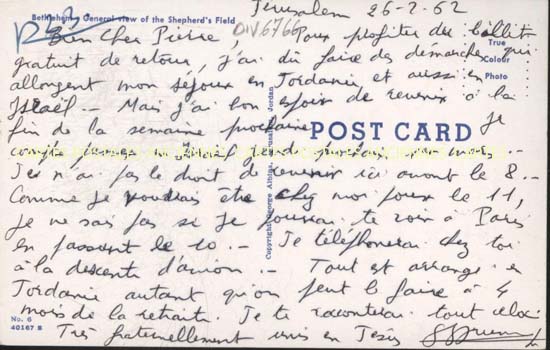 Jerusalem 26-2-62
Bethlehem General view of the Shepherd's Field
DIV6766
Bien Cher Pierre, Pour profiter du billet
gratuit de retour, j'ai dû faire des démarches qui
allongent mon séjour en Jordanie et aussi en
Israël -- Mais j'ai bon espoir de revenir à la
fin de la semaine prochaine Je
compte passer en Israël jeudi prochain
Je n'ai pas le droit de revenir ici avant le 8 --
Comme je voudrais être chez moi pour le 11,
je ne sais pas si je pourrai te voir à Paris
en passant le 10 -- Je téléphonerai chez toi
à la descente d'avion -- Tout est arrangé en
Jordanie autant qu'on peut le faire à 4
mois de la retraite. Je te raconterai tout cela
Très fraternellement unis en Jésus
True
Colour
Photo
POST CARD
Copyright George Albina, Jerusalem Jordan
No. 6
40167 B